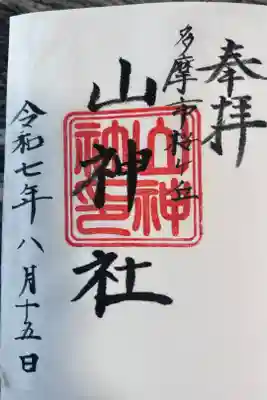 奉拝
多摩市桜ヶ丘
山神社
山神神印
令和七年八月十五日